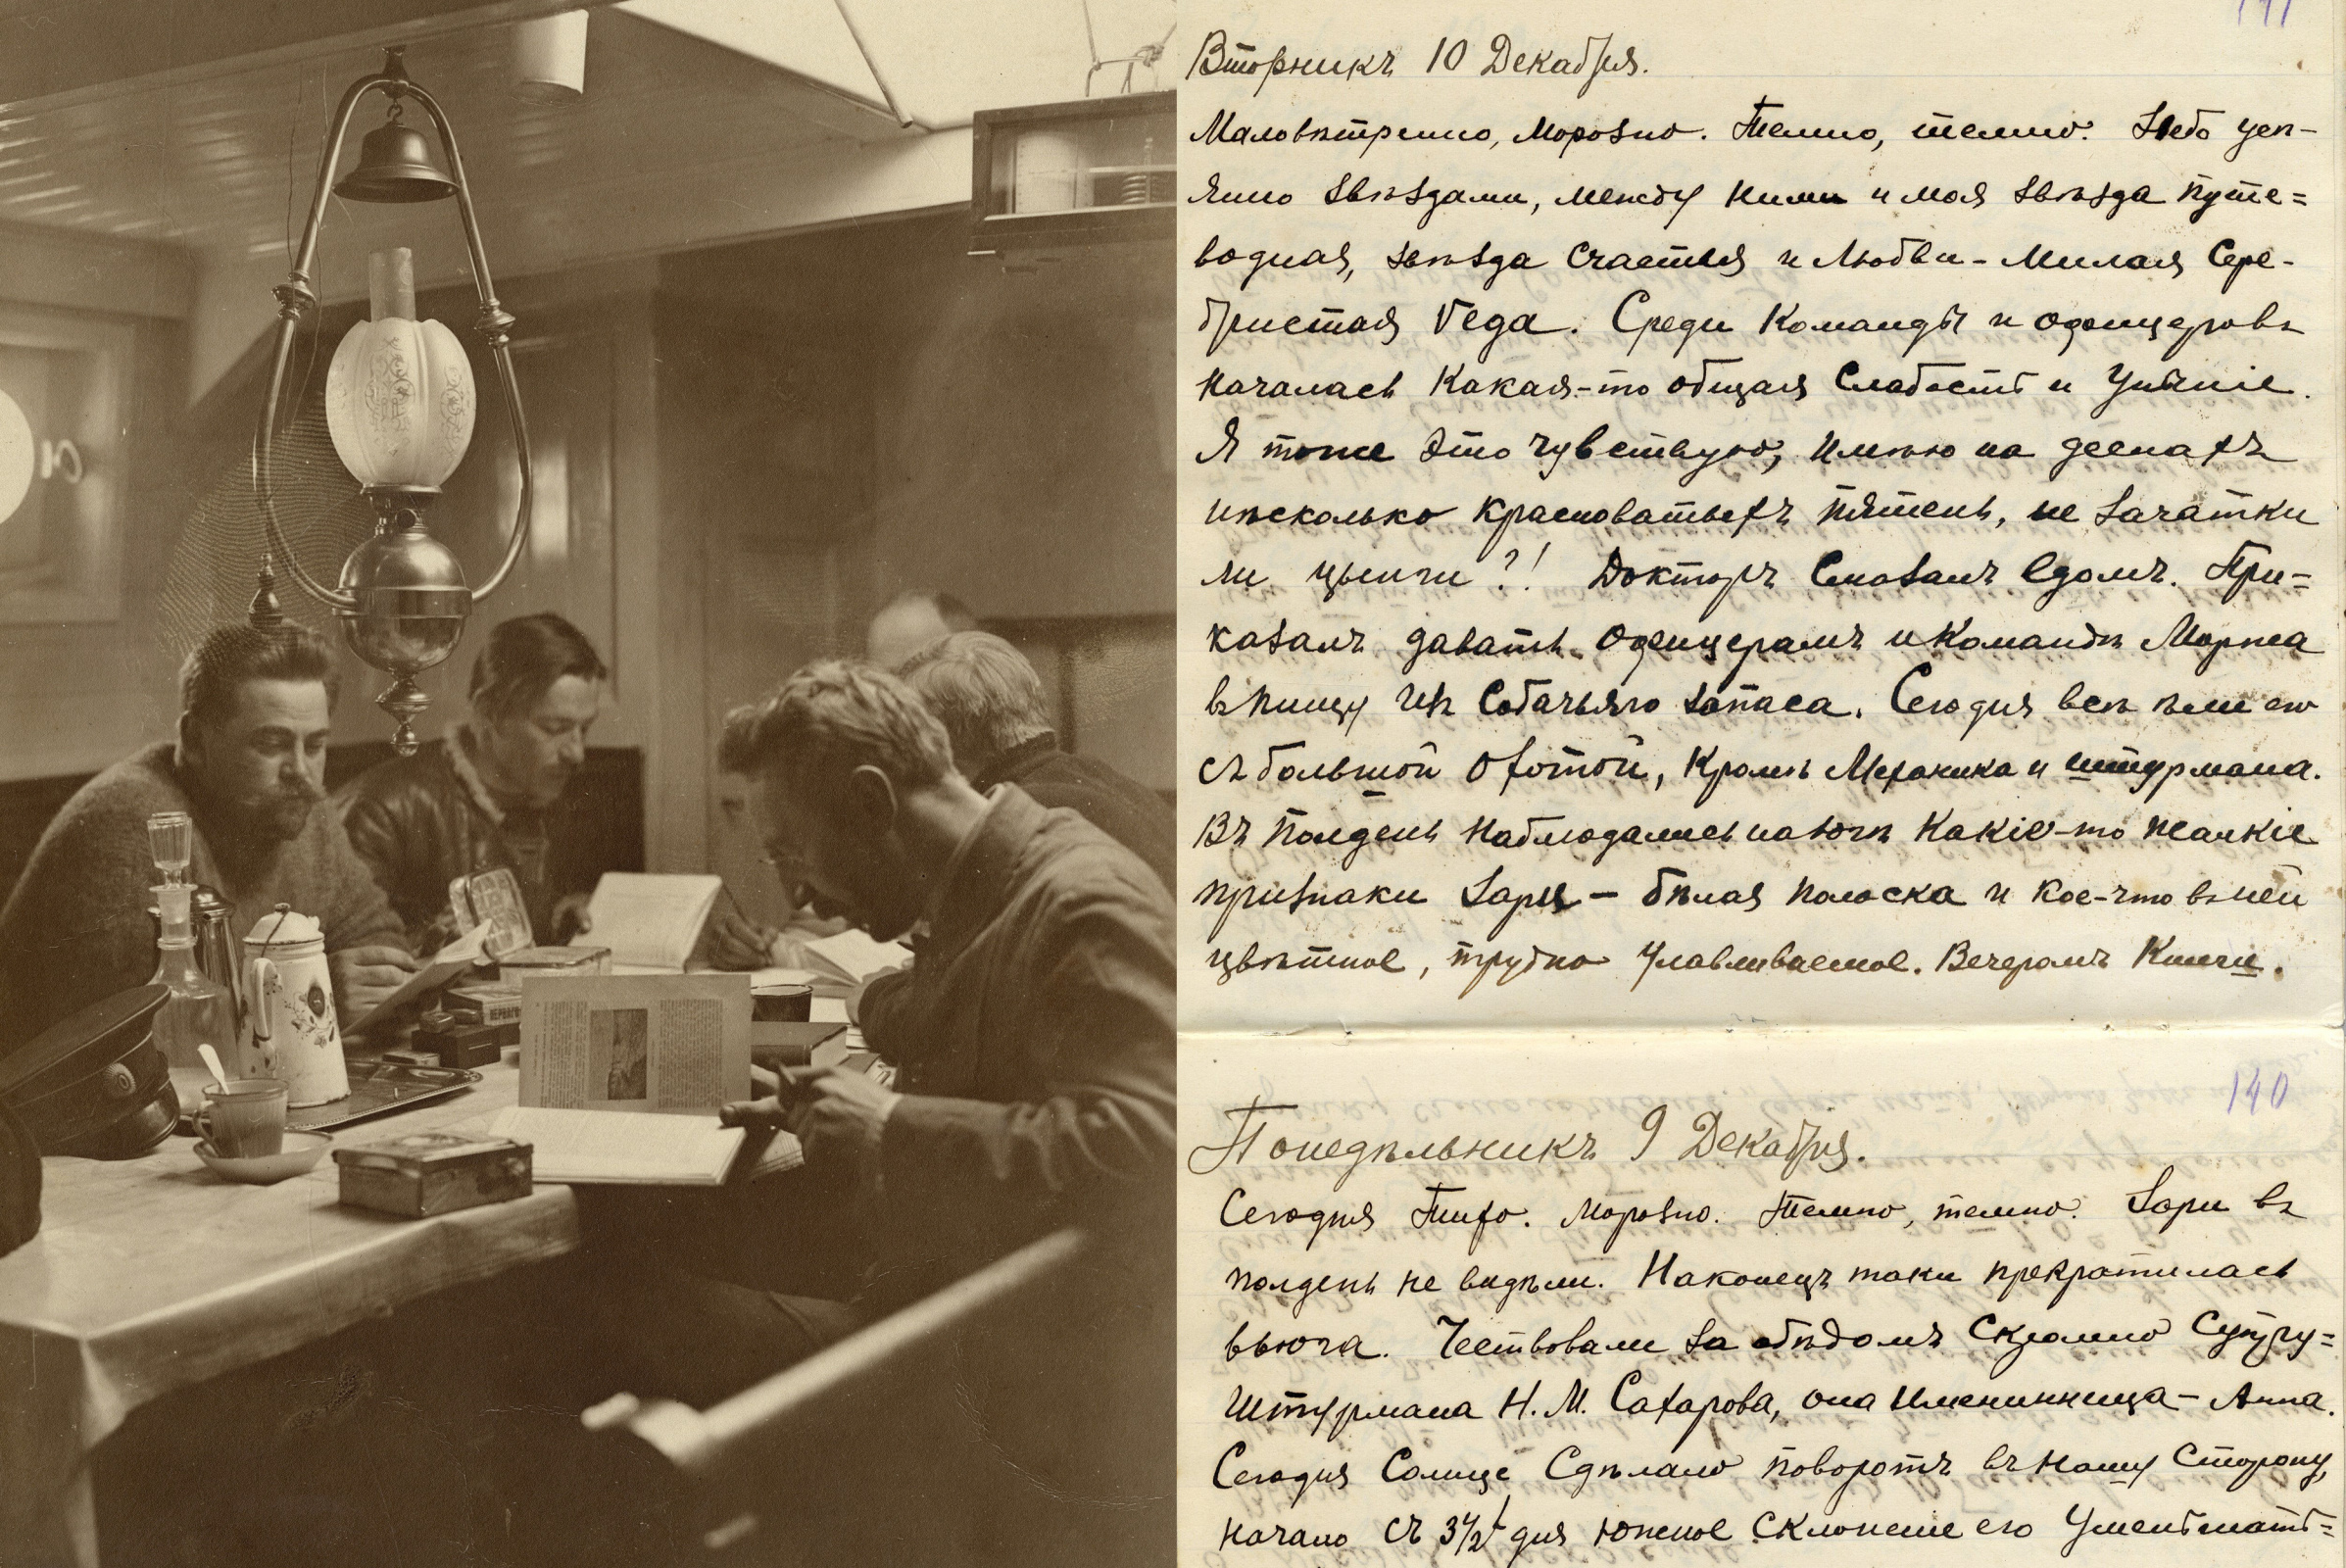 141
Вторникъ 10 Декабря.
Маловѣтренно, морозно. Темно, темно. Небо усѣ-
яно звѣздами, между ними и моя звѣзда путе=
водная, звѣзда счастья и Любви - Милая Сере-
бристая Вега. Среди Команды и офицеровъ
началась Какая-то общая Слабость и Уныніе.
Я тоже Это чувствую, имѣю на деснахъ
нѣсколько красноватыхъ пятенъ, не зачатки
ли цынги?! Докторъ Смазалъ Iодомъ. При=
казалъ давать Офицерамъ и Командѣ Моржа
въ пищу изъ Собачьяго запаса. Сегодня всѣ ѣли его
съ большой Охотой, Кромѣ Механика и штурмана.
Въ полдень Наблюдались на югѣ Какіе-то жалкіе
признаки Зари - бѣлая полоска и кое-что въ ней
цвѣтное, трудно Улавливаемое. Вечеромъ Книги.
140
Понедѣльникъ 9 Декабря.
Сегодня Тихо. Морозно. Темно, темно. Зари въ
полдень не видѣли. Наконецъ таки прекратилась
вьюга. Чествовали за обѣдомъ Скромно Супру=
Штурмана Н. М. Сахарова, она Именинница - Анна.
Сегодня Солнце Сдѣлало поворотъ въ нашу Сторону,
начало съ 3 1/2 ч дня южное склоненіе его Уменьшать=